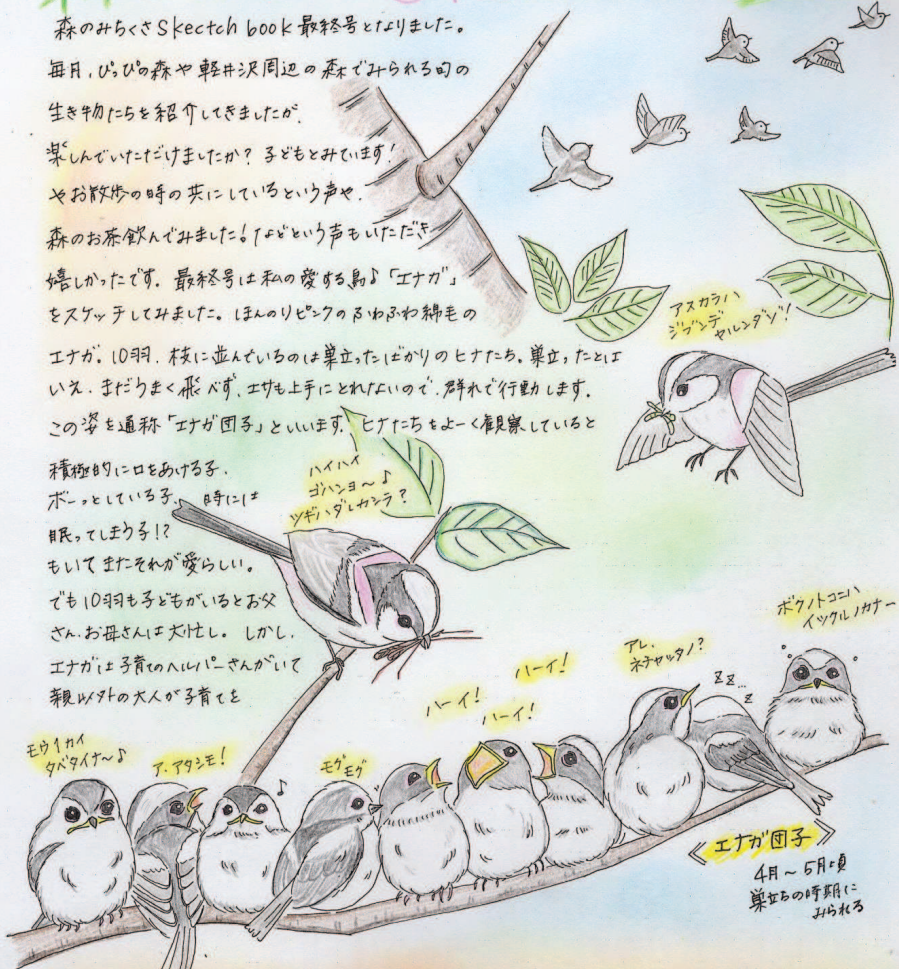 森のみちくさSkectch book 最終号となりました。
毎月、ぴっぴの森や軽井沢周辺の森でみられる旬の
生き物たちを紹介してきましたが、
楽しんでいただけましたか？子どもとみています！
やお散歩の時の共にしているという声や、
森のお茶飲んでみました！などという声もいただき
嬉しかったです。最終号は私の愛する鳥♪「エナガ」
をスケッチしてみました。ほんのりピンクのふわふわ綿毛の
エナガ。10羽、枝に並んでいるのは巣立ったばかりのヒナたち。巣立ったとは
いえ、まだうまく飛べず、エサも上手にとれないので、群れで行動します。
この姿を通称「エナガ団子」といいます。ヒナたちをよーく観察していると
積極的に口をあける子、
ボーっとしている子、時には
眠ってしまう子！？
もいてまたそれが愛らしい。
でも10羽も子どもがいるとお父
さん、お母さんは大忙し。しかし、
エナガは子育てのヘルパーさんがいて
親以外の大人が子育てを
アスカラハ
ジブンデ
ヤルンダゾ！
ハイハイ
ゴハンヨ～♪
ツギハダレカシラ？
モウ1カイ
タベタイナ～♪
ア、アタシモ！
♪
モグ
モグ
ハーイ！
ハーイ！
ハーイ！
アレ、
ネチャッタノ？
ZZ...
Z
ボクノトコニハ
イツクルノカナー
《エナガ団子》
4月～5月頃
巣立ちの時期に
みられる